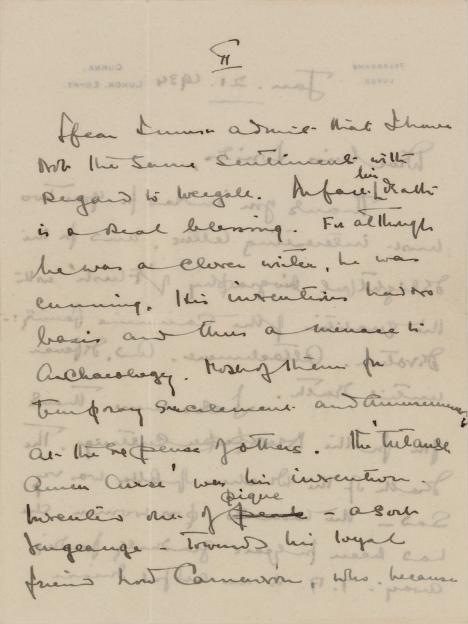 II
I fear I must admit that I have
not the same sentiment with
regard to Weigall. In fact his death
is a real blessing. For although
he was a clever writer, he was
cunning. His inventions had no
basis and thus a menace to
Archaeology. Most of them for
temporary excitement and amusement
at the expense of others. The 'Tutankh
Amen Curse' was his invention.
Invented out of pique - a sort
vengeance - towards his loyal
friend Lord Carnarvon, who because